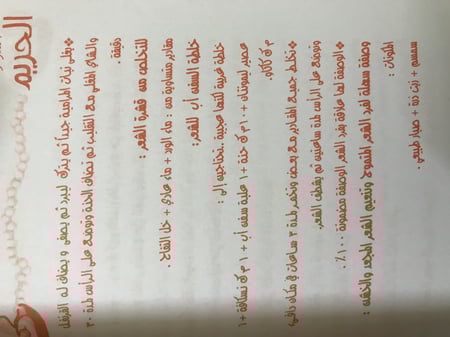 الحريم
❖ يغلى نبات الميرامية جيداً ثم يترك ليبرد ثم يصفى ويضاف له القرنفل
والشاي المغلي مع التقليب ثم تضاف الحنة وتوضع على الرأس لمدة ٣٠
دقيقة .
للتخلص من قشرة الشعر :
مقادير متساوية من : ماء الورد + ماء عادي + خل التفاح .
خلطة السفن أب للشعر :
خلطة غريبة لكنها عجيبة ..نحتاجيه إلى :
عصير ليمونتان + ١٠٠م ك حنة + ١ علبة سفن أب + ١ م ك نسكافة + ١
م ك كاكاو .
❖ نخلط جميع المقادير مع بعض وتخمر لمدة ٣ ساعات في مكان دافئ
وتوضع على الرأس لمدة ساعتين ثم يشطف الشعر .
❖ الوصفة لها علاقة بفرد الشعر الوصفة مضمونة ١٠٠٪ .
وصفة سهلة لفرد الشعر المتموج وتنعيم الشعر المجعد والخشنه :
المكونات :
سمسم + زيت + صبار طبيعي .